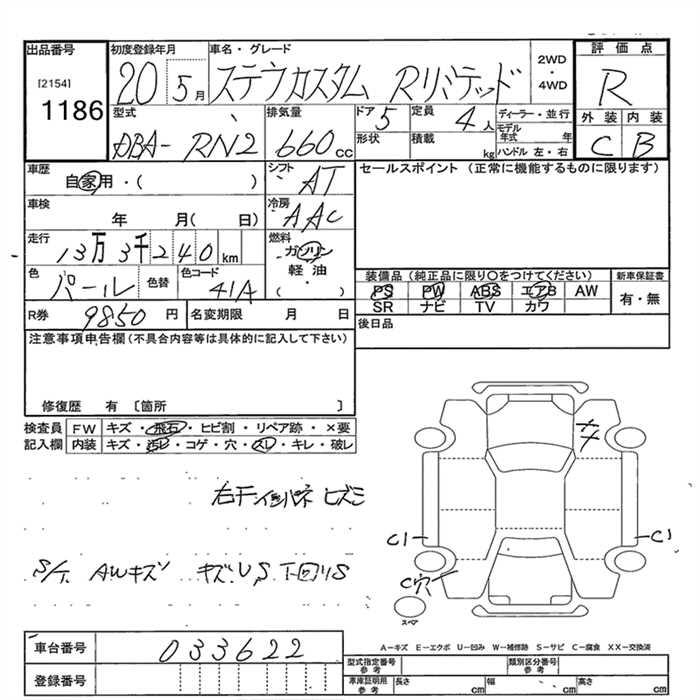 出品番号 初度登録年月 車名・グレード 2WD・4WD 評価点
[2154] 1186 20 5月 ステラカスタム Rリミテッド R
型式 排気量 ドア 5 定員 4人 ディーラー・並行 外装 内装
DBA-RN2 660cc 形状 積載 kg モデル年式 年 ハンドル 左・右 C B
車歴 シフト AT セールスポイント (正常に機能するものに限ります)
自家用・( )
車検 年 月( 日) 冷房 AAC
走行 13万3千240km 燃料 ガソリン
色 パール 色替 色コード 41A 軽油・( )
装備品 (純正品に限り〇をつけてください) 新車保証書
PS PW ABS エアB AW 有・無
SR ナビ TV カワ
R券 9850円 名変期限 月 日 後日品
注意事項申告欄(不具合内容等は具体的に記入して下さい)
修復歴 有 〔箇所 〕
検査員記入欄 FW キズ・飛石・ヒビ割・リペア跡・×要
内装 キズ・汚レ・コゲ・穴・スレ・キレ・破レ
C1 C1
C穴
スペア
S/T AWキズ キズ.U,S 下回りS
A-キズ E-エクボ U-凹み W-補修跡 S-サビ C-腐食 XX-交換済
車台番号 033622
登録番号
型式指定番号 参考 類別区分番号 参考
車庫証明用 参考 長さ cm 幅 cm 高さ cm